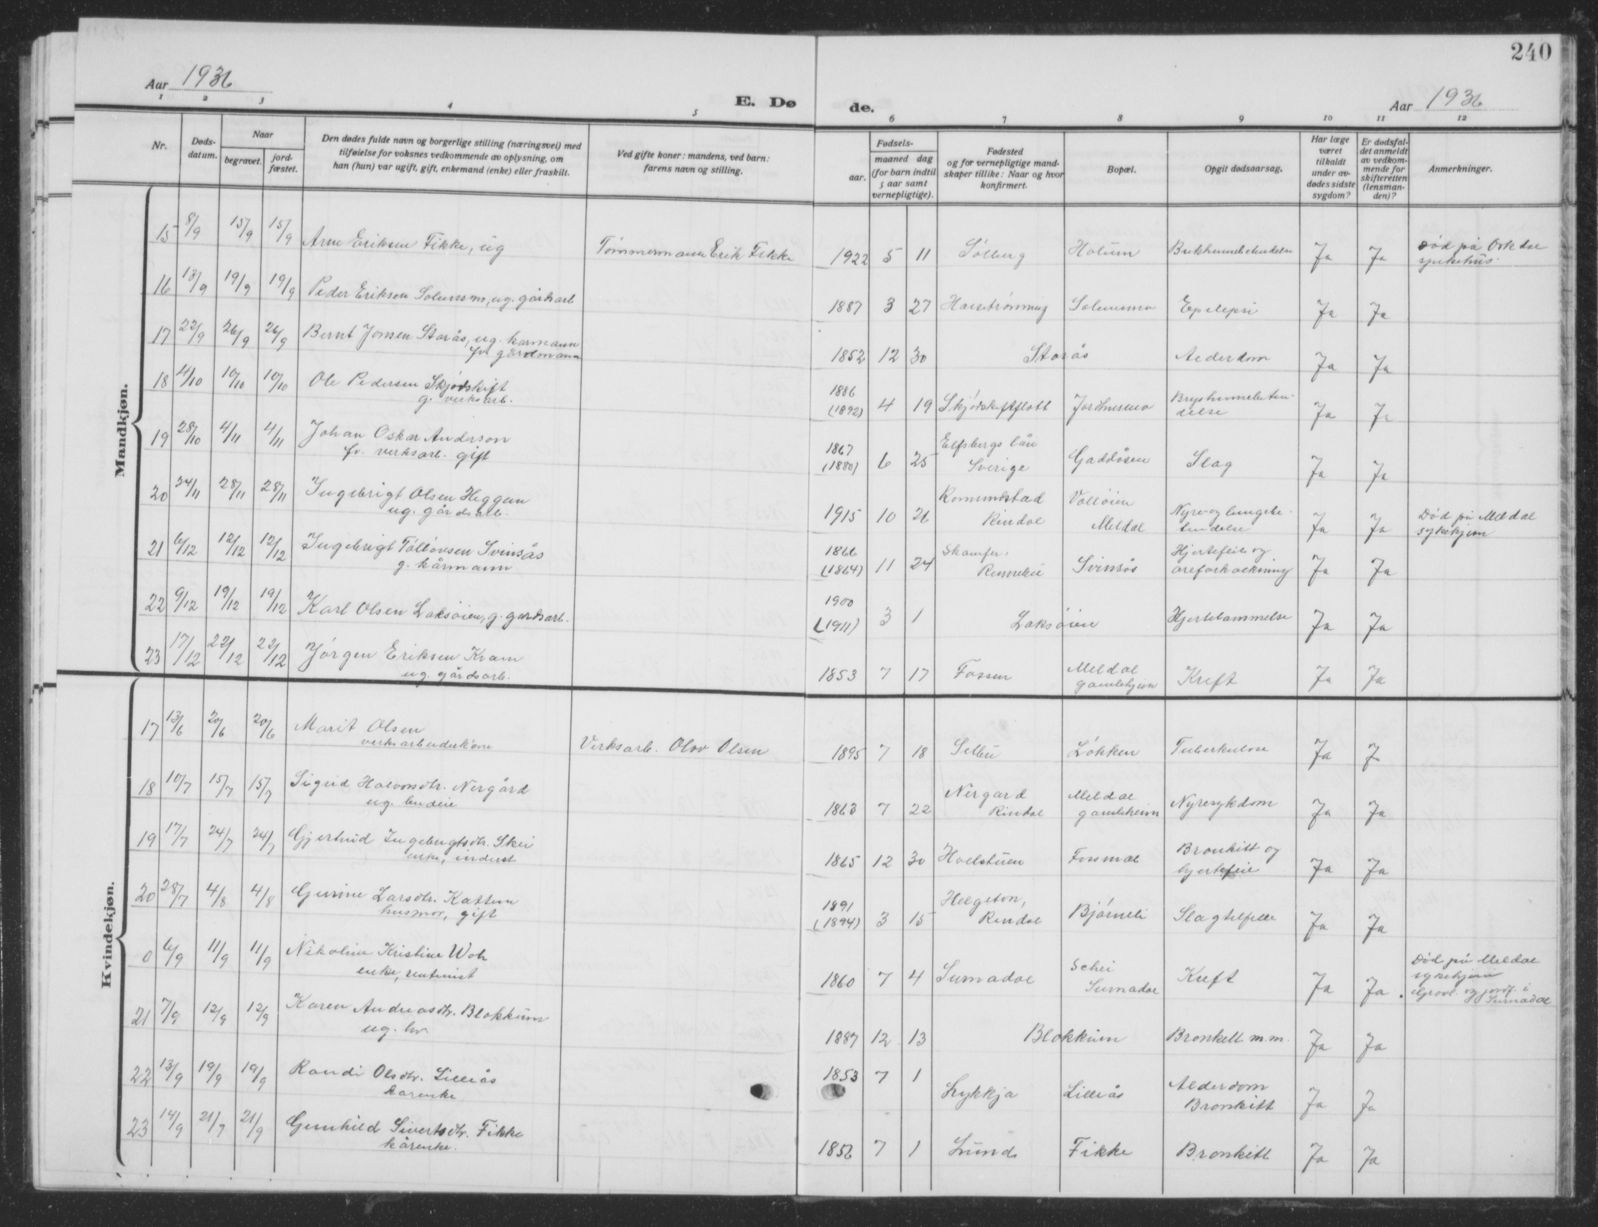 240
Aar 1936
E. Dø de.
Aar 1936
1 2 3 4 5 6 7 8 9 10 11 12
Nr.
Døds-datum.
Naar
begravet.
jord-fæstet.
Den dødes fulde navn og borgerlige stilling (næringsvei) med
tilføielse for voksnes vedkommende av oplysning, om
han (hun) var ugift, gift, enkemand (enke) eller fraskilt.
Ved gifte koner: mandens, ved barn:
farens navn og stilling.
Fødsels-
aar.
maaned dag
(for barn indtil
5 aar samt
vernepligtige).
Fødested
og for vernepligtige mand-
skaper tillike: Naar og hvor
konfirmert.
Bopæl.
Opgit dødsaarsag.
Har læge
været
tilkaldt
under av-
dødes sidste
sygdom?
Er dødsfal-
det anmeldt
av vedkom-
mende for
skifteretten
(lensman-
den)?
Anmerkninger.
Mandkjøn.
15 8/9 15/9 15/9 Arne Eriksen Fikke, ug Tømmermann Erik Fikke 1922 5 11 Solberg Holum Ja Ja Død på Orkdal
sykehus.
16 13/9 19/9 19/9 Peder Eriksen Solemsm, ug. gårdsarb 1887 3 27 Solemsmo Epilepsi Ja Ja
17 22/9 26/9 26/9 Bernt Jonsen Storås, ug. kårmann
fv. gårdmann 1852 12 30 Storås Alderdom Ja Ja
18 4/10 10/10 10/10 Ole Pedersen Skjødskift
g. verksarb. 1886
(1892) 4 19 Skjødskiftflott Jordhusmo Brysthinnebeten-
delse Ja Ja
19 28/10 4/11 4/11 Johan Oskar Anderson
fv. verksarb. gift 1867
(1880) 6 25 Elfsborgs län
Sverige Gaddåsen Slag Ja Ja
20 24/11 28/11 28/11 Ingebrigt Olsen Heggem
ug. gårdsarb. 1915 10 26 Rommestad
Rindal Volløien
Meldal Nyre og lungebe-
tendelse Ja Ja Død på Meldal
sykehjem
21 6/12 12/12 12/12 Ingebrigt Tollovsen Svinsås
g. kårmann 1866
(1864) 11 24
Rennebu Svinsås Hjertefeil og
åreforkalkning Ja Ja
22 9/12 19/12 19/12 Karl Olsen Laksøien, g. gardsarb. 1900
(1911) 3 1 Laksøien Hjertelammelse Ja Ja
23 17/12 22/12 22/12 Jørgen Eriksen Kram
ug. gårdsarb. 1853 7 17 Fossen Meldal
gamlehjem Kreft Ja Ja
Kvindekjøn.
17 13/6 20/6 20/6 Marit Olsen
verksarbeiderkone Verksarb. Olav Olsen 1895 7 18 Selbu Løkken Tuberkulose Ja J
18 10/7 15/7 15/7 Sigrid Halvorsdtr. Nergård
ug. budeie 1863 7 22 Nergard
Rindal Meldal
gamleheim Nyresykdom Ja Ja
19 17/7 24/7 24/7 Gjertrud Ingebrigtsdtr. Skei
enke, inderst 1865 12 30 Holstuen Fossmal Bronkitt og
hjertefeil Ja Ja
20 28/7 4/8 4/8 Gurine Larsdtr. Kattum
husmor, gift 1891
(1894) 3 15 Helgeton,
Rindal Bjørnli Slagtilfelle Ja Ja
0 6/9 11/9 11/9 Nikoline Kristine Wold
enke, rentenist 1860 7 4 Surnadal Schei
Surnadal Kreft Ja Ja. Død på Meldal
sykehjem
Gravl. og jordf. i
Surnadal
21 7/9 12/9 12/9 Karen Andreasdtr. Blokkum
ug. hv. 1887 12 13 Blokkum Bronkitt m.m. Ja Ja
22 13/9 19/9 19/9 Randi Olsdtr. Lilleås
kårenke 1853 7 1 Lykkja Lilleås Alderdom
Bronkitt Ja Ja
23 14/9 21/7 21/9 Gunhild Sivertsdtr. Fikke
kårenke. 1856 7 1 Lund Fikke Bronkitt Ja Ja